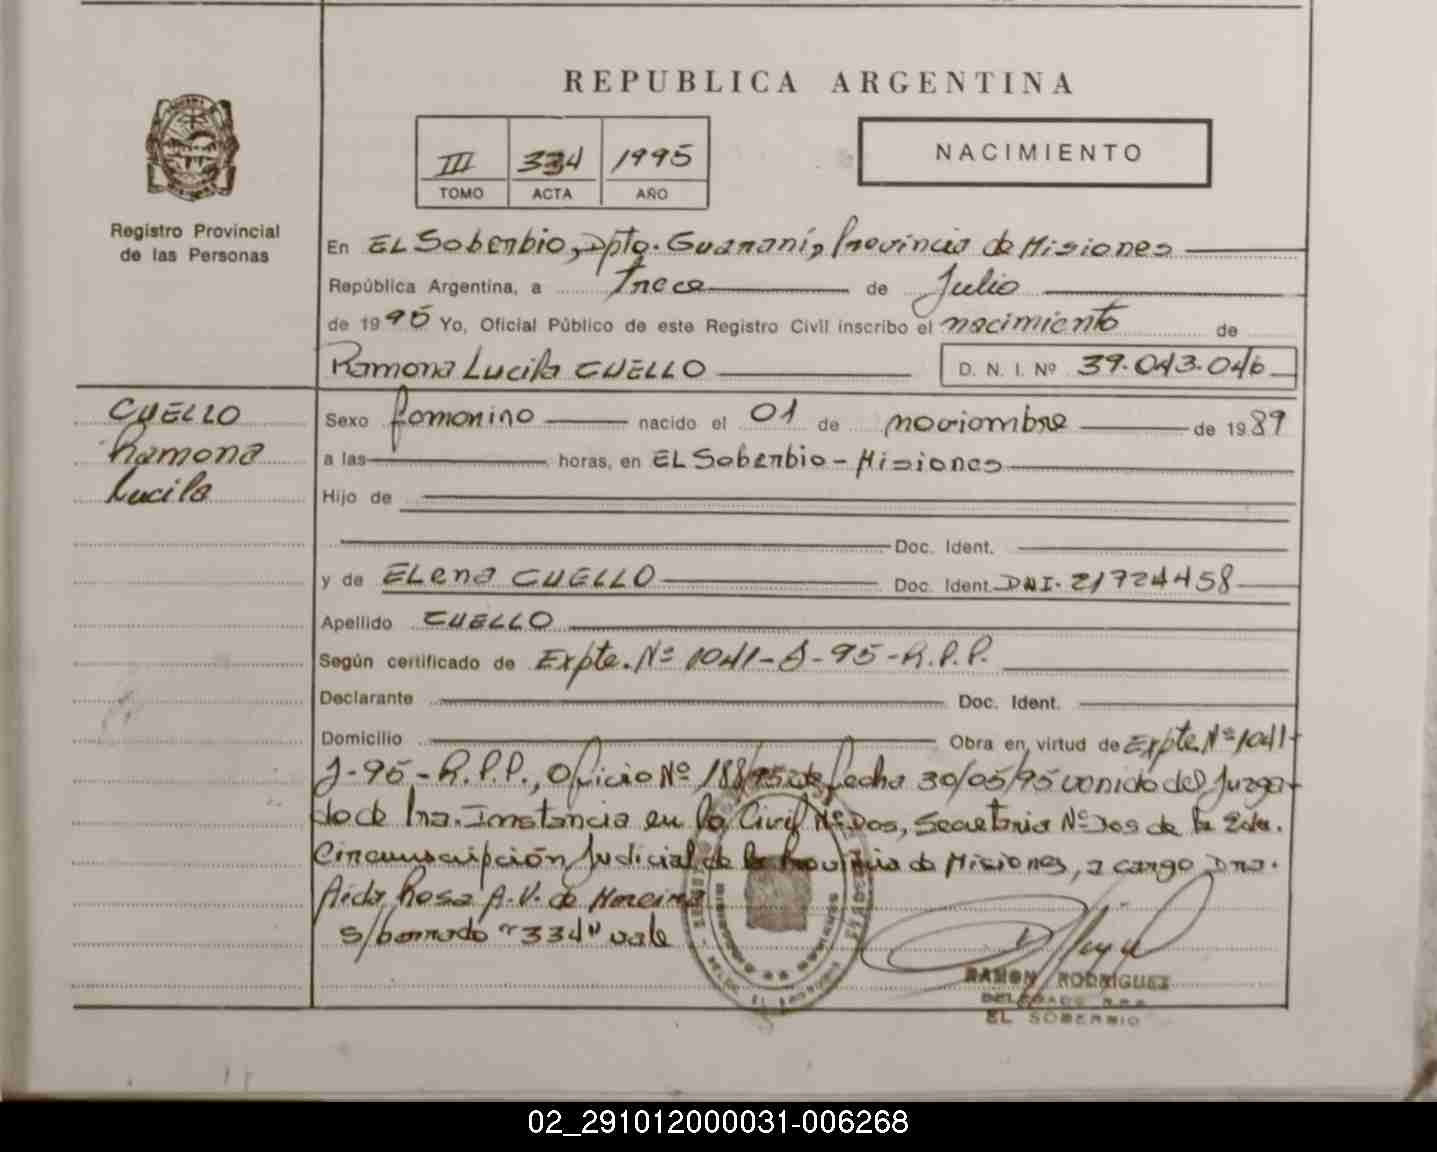 REPUBLICA ARGENTINA
III 334 1995
TOMO ACTA AÑO
NACIMIENTO
Registro Provincial
de las Personas
En EL Soberbio, Dpto. Guaraní, Provincia de Misiones
República Argentina, a Trece de Julio
de 1995 Yo, Oficial Público de este Registro Civil inscribo el nacimiento de
Ramona Lucila CUELLO D. N. I. Nº 39.043.046
CUELLO
Ramona
Lucila
Sexo femenino nacido el 01 de noviembre de 1989
a las horas, en EL Soberbio - Misiones
Hijo de
Doc. Ident.
y de ELena CUELLO Doc. Ident. DNI. 21724458
Apellido CUELLO
Según certificado de Expte. Nº 1041-J-95-R.P.P.
Declarante Doc. Ident.
Domicilio Obra en virtud de Expte. Nº 1041-
J-95-R.P.P., Oficio Nº 188/95 de fecha 30/05/95 venido del Juzga-
do de 1ra. Instancia en lo Civil Nº Dos, Secretaria Nº Dos de la 2da.
Circunscripción Judicial de la Provincia de Misiones, a cargo Dra.
Aida Rosa A.V. de Moreira
s/borrado "334" vale
RAMON RODRIGUEZ
DELEGADO R.P.P.
EL SOBERBIO
02_291012000031-006268